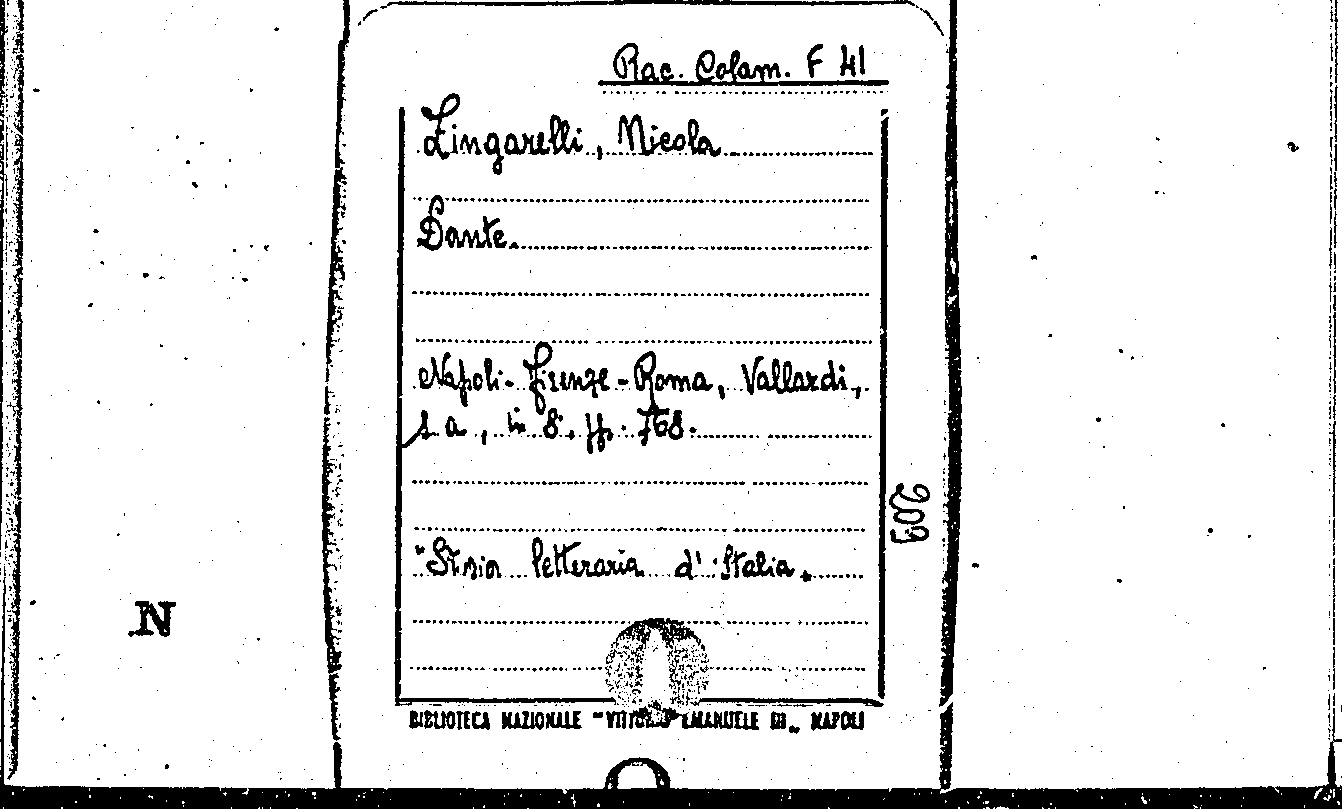 Rac. Colam. F 41
Zingarelli, Nicola
Dante.
Napoli-Firenze-Roma, Vallardi,
s. a., in 8°. pp. 768.
"Storia letteraria d'Italia„
BIBLIOTECA NAZIONALE "VITTORIO EMANUELE III„ NAPOLI
N